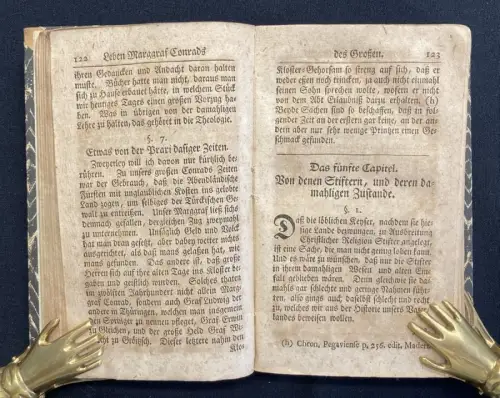 122 Leben Marggraf Conrads
ihren Gedancken und Andacht daran halten
muste. Bücher hatte man nicht, daraus man
sich zu Hause erbauet hätte, in welchem Stück
wir heutiges Tages einen großen Vorzug ha-
ben. Was in übrigen von der damahligen
Lehre zu halten, das gehöret in die Theologie.
§. 7.
Etwas von der Praxi dasiger Zeiten.
Zweyerley will ich davon nur kürtzlich be-
rühren. Zu unsers großen Conrads Zeiten
war der Gebrauch, daß die Abendländische
Fürsten mit unglaublichen Kosten ins gelobte
Land zogen, um selbiges der Türckischen Ge-
walt zu entreißen. Unser Marggraf ließ sichs
demnach gefallen, dergleichen Zug zweymahl
zu unternehmen. Unsäglich Geld und Volck
hat man dran gesetzt, aber dabey weiter nichts
ausgerichtet, als daß man gelehrt hat, wie
mans gefunden. Das andere ist, daß große
Herren sich auf ihre alten Tage ins Kloster be-
gaben und geistlich wurden. Solches that
im zwölften Jahrhundert nicht allein Marg-
graf Conrad, sondern auch Graf Ludwig der
andere in Thüringen, welchen man insgemein
den Springer zu nennen pfleget, Graf Erwin
zu Gleichen, und der große Held Graf Wi-
precht zu Gröitzsch. Dieser letztere nahm den
Klo-
des Großen. 123
Kloster-Gehorsam so streng auf sich, daß er
weder essen noch trincken, ja auch nicht einmahl
seinen Sohn sprechen wolte, wofern er nicht
von dem Abt Erlaubniß darzu erhalten. (h)
Beyde Sachen sind so beschaffen, daß in fol-
gender Zeit an der erstern gar keine, an der an-
dern aber nur sehr wenige Printzen einen Ge-
schmack gefunden.
Das fünfte Capitel.
Von denen Stiftern, und deren da-
mahligen Zustande.
§. 1.
Daß die löblichen Keyser, nachdem sie hie-
sige Lande bezwungen, zu Ausbreitung
Christlicher Religion Stifter angelegt,
ist eine Sache, die man nicht genug loben kan.
Und es wäre zu wünschen, daß nur die Stifter
in ihrem damahligen Wesen und alten Ein-
falt geblieben wären. Denn gleichwie sie da-
mahls gar schlechte und geringe Nahmen führ-
ten, also gings auch daselbst schlecht und recht
zu, welches wir aus der Historie unsers Vater-
landes beweisen wollen.
(h) Chron. Pegaviense p. 256. edit. Maderi.